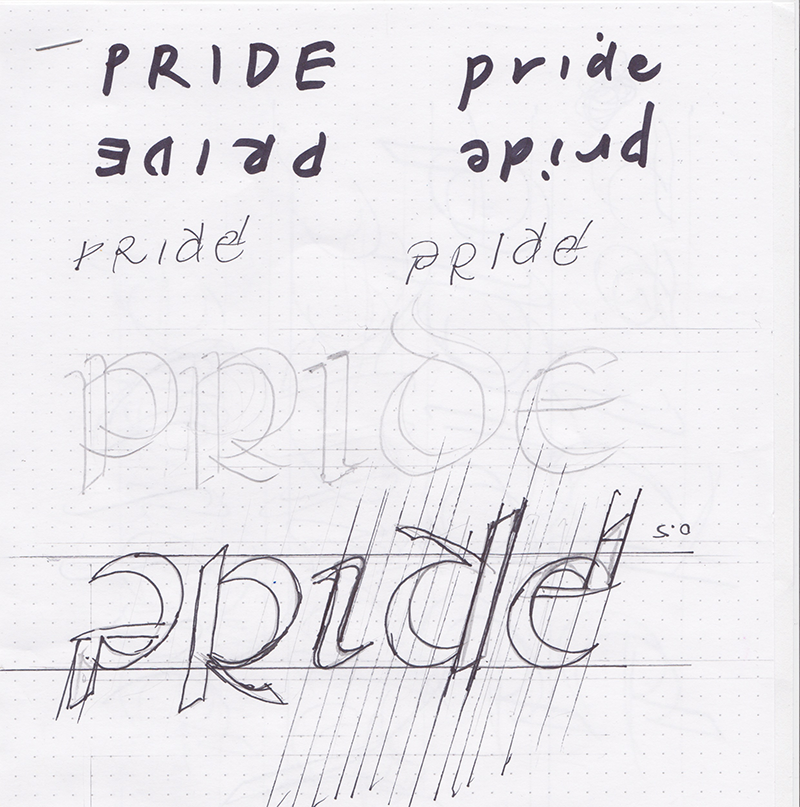 PRIDE pride
PRIDE pride
PRIde pRIde
PRIDE
pRide 5.0